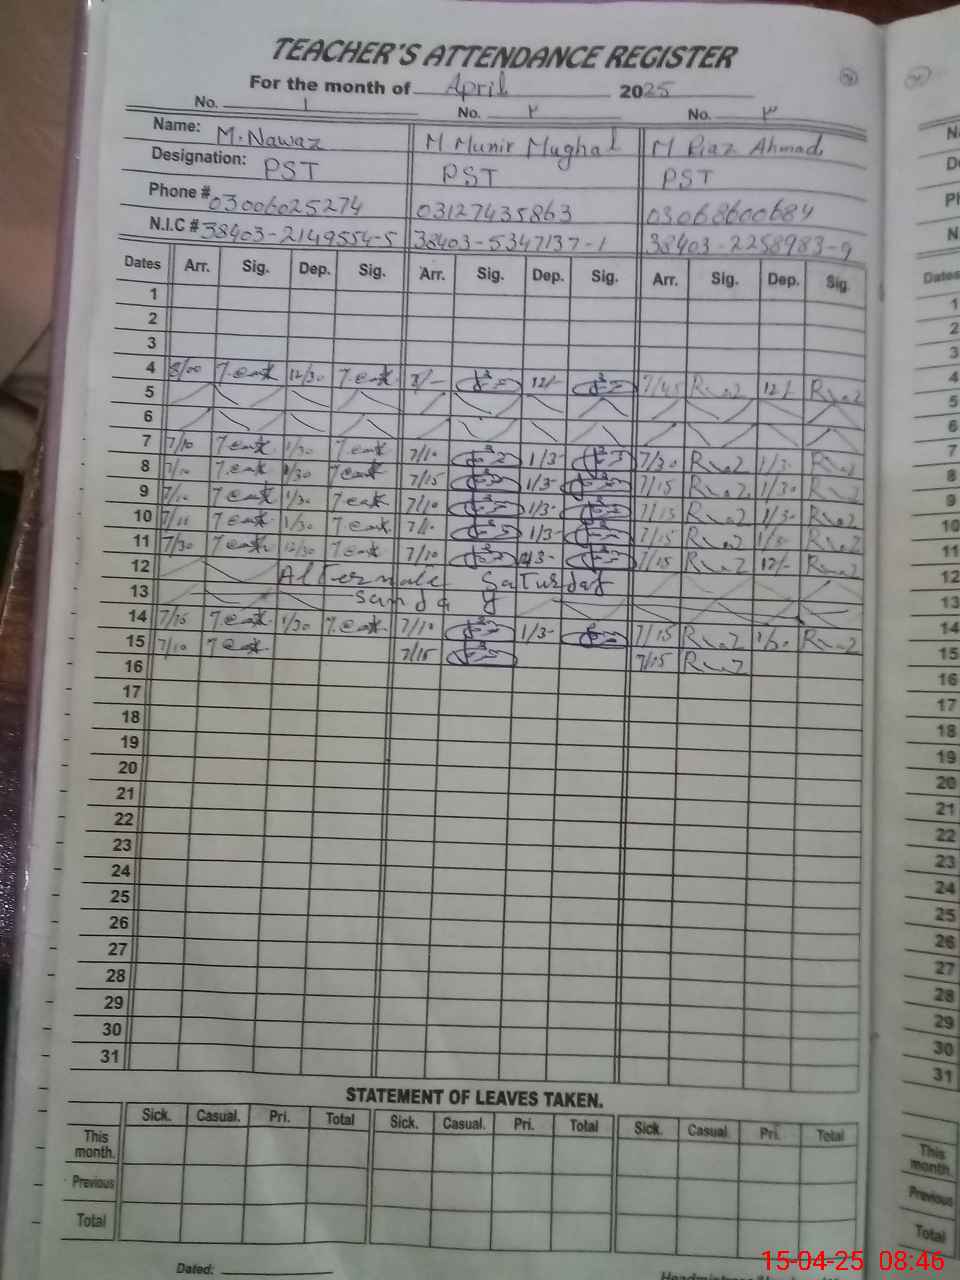 TEACHER'S ATTENDANCE REGISTER
For the month of April 2025
No. 1 No. ۲ No. ۳
Name: M.Nawaz M Munir Mughal M Riaz Ahmad
Designation: PST PST PST
Phone # 03006025274 03127435863 03068600684
N.I.C # 38403-2149554-5 38403-5347137-1 38403-2258983-9
Dates Arr. Sig. Dep. Sig. Arr. Sig. Dep. Sig. Arr. Sig. Dep. Sig.
1
2
3
4 8/00 12/30 8/- 12/- 7/45 12/-
5
6
7 7/10 1/30 7/10 1/3- 7/30 1/3-
8 7/10 1/30 7/15 1/3- 7/15 1/30
9 7/10 1/30 7/10 1/3- 7/15 1/3-
10 7/10 1/30 7/10 1/3- 7/15 1/3-
11 7/30 12/30 7/10 7/15 12/-
12 Alternate Saturday
13 Sunday
14 7/15 1/30 7/10 1/3- 7/15 1/30
15 7/10 7/15 7/15
16
17
18
19
20
21
22
23
24
25
26
27
28
29
30
31
STATEMENT OF LEAVES TAKEN.
Sick. Casual. Pri. Total Sick. Casual. Pri. Total Sick. Casual Pri. Total
This month.
Previous
Total
Dated:
15-04-25 08:46